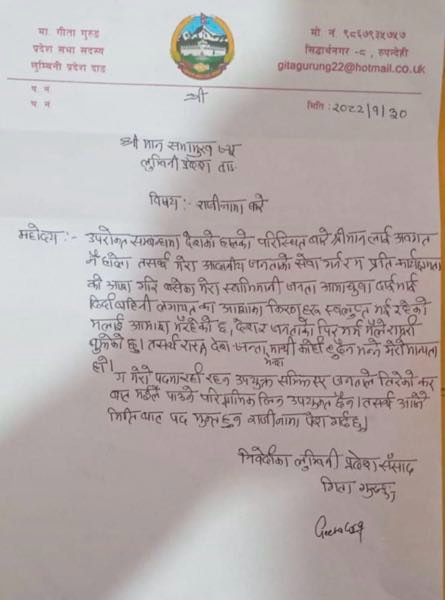 मा. गीता गुरुङ
प्रदेश सभा सदस्य
लुम्बिनी प्रदेश दाङ
मो नं ९८६७९३५७५७
सिद्धार्थनगर -८, रुपन्देही
gitagurung22@hotmail.co.uk
प. नं.
च. नं
श्री
मिति: २०८२/१/३०
श्री मान सभामुख ज्यू
लुम्बिनी प्रदेश दाङ
विषय:- राजीनामा बारे
महोदय:- उपरोक्त सम्बन्धमा देशको हालको परिस्थित बारे श्रीमान लाई अवगत
नै होला तसर्थ मेरा आदरणीय जनताको सेवा गर्न र म प्रति कार्यक्षमता
की आशा गरि बसेका मेरा स्वाभिमानी जनता आमाबुवा दाईभाई
दिदीबहिनी लगायत का आशाका किरणहरु भई रहेको
मलाई आभाष भैरहेको छ, देश र जनताको पिर मर्म मैले राम्ररी
बुझेको छु। तसर्थ राष्ट्र देश जनता भन्दा माथी कोही हुदैन भन्ने मेरो मान्यता
हो।
म मेरो पदमा रही रहन उपयुक्त जनताले तिरेको कर
बाट मैले पाउने पारिश्रमिक लिन उपयुक्त छैन। तसर्थ आजैको
मिति बाट पद मुक्त हुन राजीनामा पेश गर्दछु।
निवेदिका लुम्बिनी प्रदेश सांसद
गिता गुरुङ